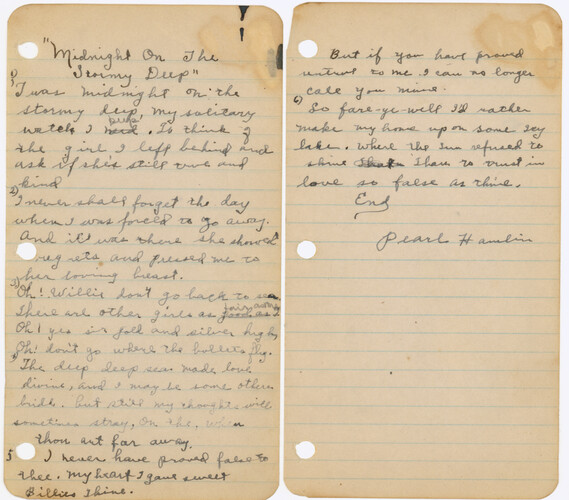 "Midnight On The
Stormy Deep"
1) Twas midnight on the
stormy deep, my solitary
watch I keep. To think of
the girl I left behind and
ask if she's still true and
kind
2) I never shall forget the day
when I was forced to go away.
And it was there she showed
regrets and pressed me to
her loving breast.
3) Oh! Willie don't go back to sea
There are other girls as
Oh! yes in gold and silver high,
Oh! don't go where the bullets fly.
4) The deep deep sea made love
divine, and I may be some others
bride. but still my thoughts will
sometimes stray, On the, when
thou art far away.
5 I never have proved false to
thee. my heart I gave sweet
Billies Thine.
But if you have proved
untrue to me. I can no longer
call you mine.
6) So fare-ye-well I'd rather
make my home up on some Icy
lake. Where the Sun refused to
shine Than to trust in
love so false as thine.
End
Pearl Hamlin